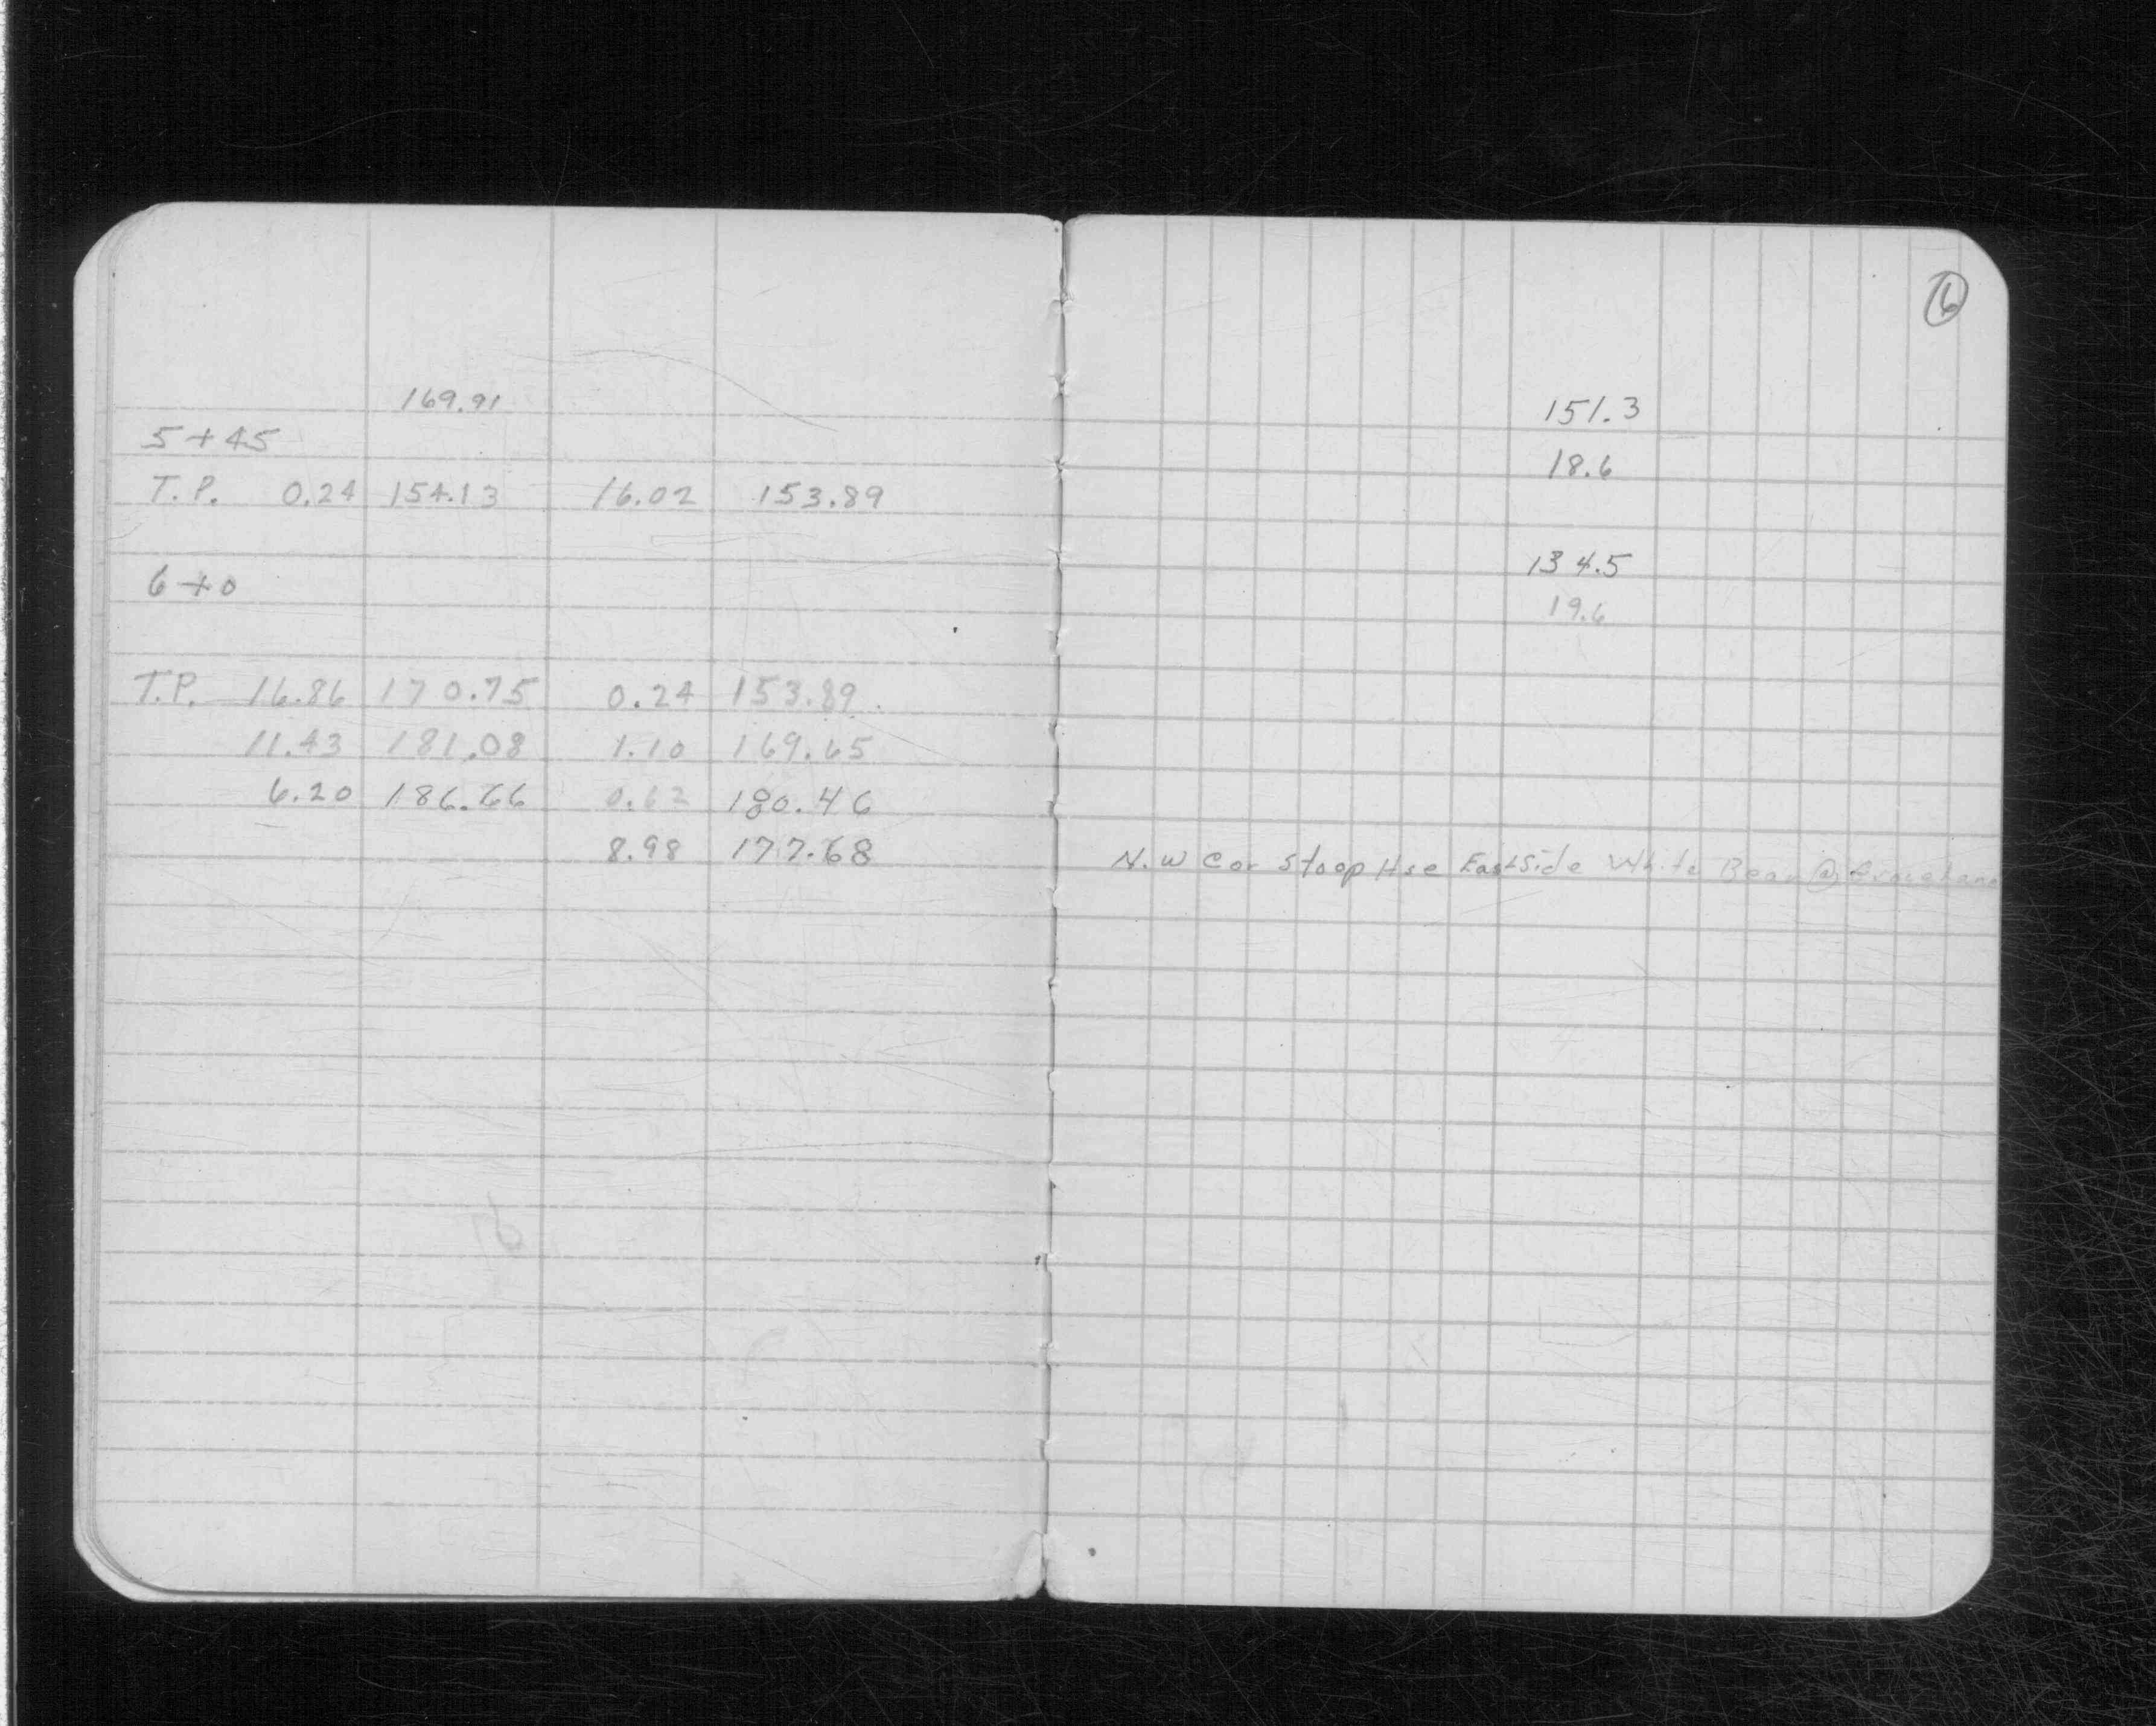 6
169.91
151.3
5+45
18.6
T.P. 0.24 154.13 16.02 153.89
134.5
6+0
19.6
T.P. 16.86 170.75 0.24 153.89
11.43 181.08 1.10 169.65
6.20 186.66 0.62 180.46
8.98 177.68
N.W Cor Stoop Hse East Side White Bear @